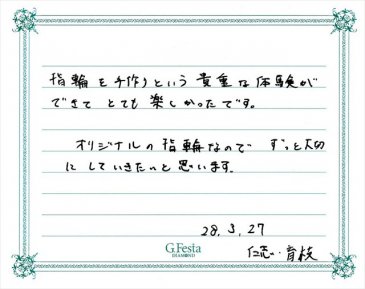 指輪を手作りという貴重な体験が
できて とても楽しかったです。
オリジナルの指輪なので ずっと大切
に していきたいと思います。
28.3.27
G.Festa
DIAMOND